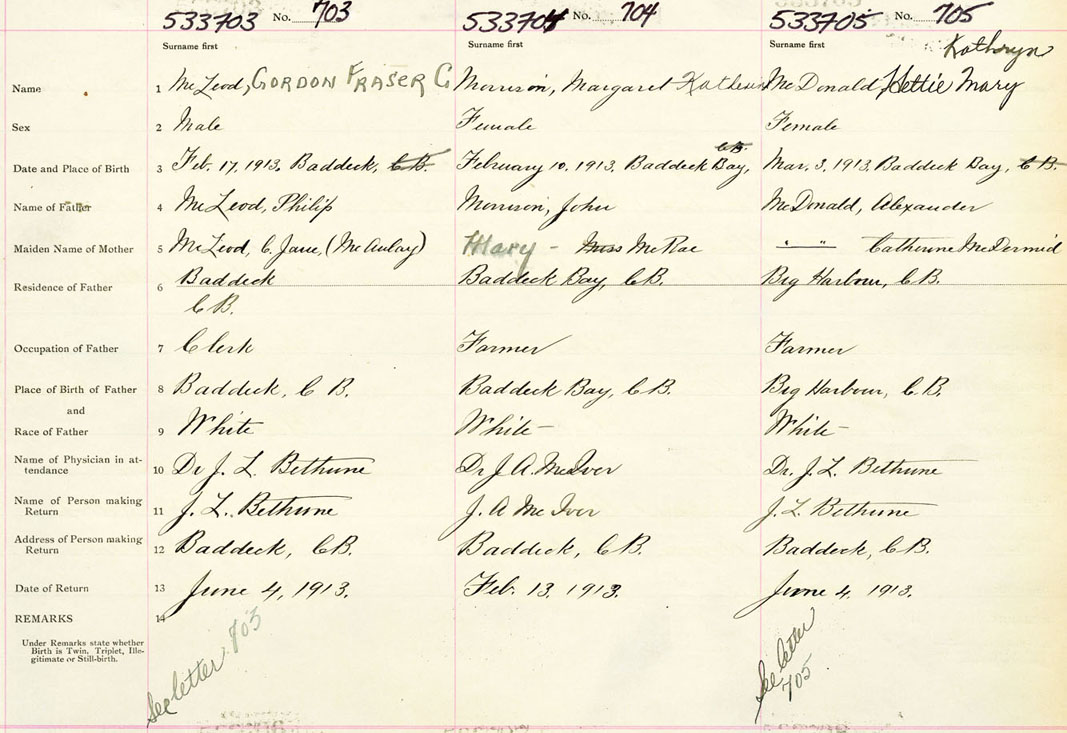 533703 No. 703 533704 No. 704 533705 No. 705
Surname first Surname first Surname first Kathryn
Name 1 McLeod, GORDON FRASER C Morrison, Margaret McDonald, Hettie Mary
Sex 2 Male Female Female
C.B.
Date and Place of Birth 3 Feb. 17, 1913. Baddeck, C.B. February 10, 1913 Baddeck Bay, Mar. 3, 1913. Baddeck Bay, C.B.
Name of Father 4 McLeod, Philip Morrison, John McDonald, Alexander
Maiden Name of Mother 5 McLeod, C. Jane, (McAulay) Mary - Miss McRae " " Catherine McDermid
Residence of Father 6 Baddeck Baddeck Bay, C.B. Big Harbour, C.B.
C.B.
Occupation of Father 7 Clerk Farmer Farmer
Place of Birth of Father 8 Baddeck, C.B. Baddeck Bay, C.B. Big Harbour, C.B.
and
Race of Father 9 White White White
Name of Physician in at-
tendance 10 Dr J. L. Bethune Dr J. A. McIver Dr. J. L. Bethune
Name of Person making
Return 11 J. L. Bethune J. A McIver J. L Bethune
Address of Person making
Return 12 Baddeck, C.B. Baddeck, C.B. Baddeck, C.B.
Date of Return 13 June 4, 1913. Feb. 13, 1913. June 4, 1913.
REMARKS 14
Under Remarks state whether
Birth is Twin, Triplet, Ille-
gitimate or Still-birth.
See letter 703
See letter
705